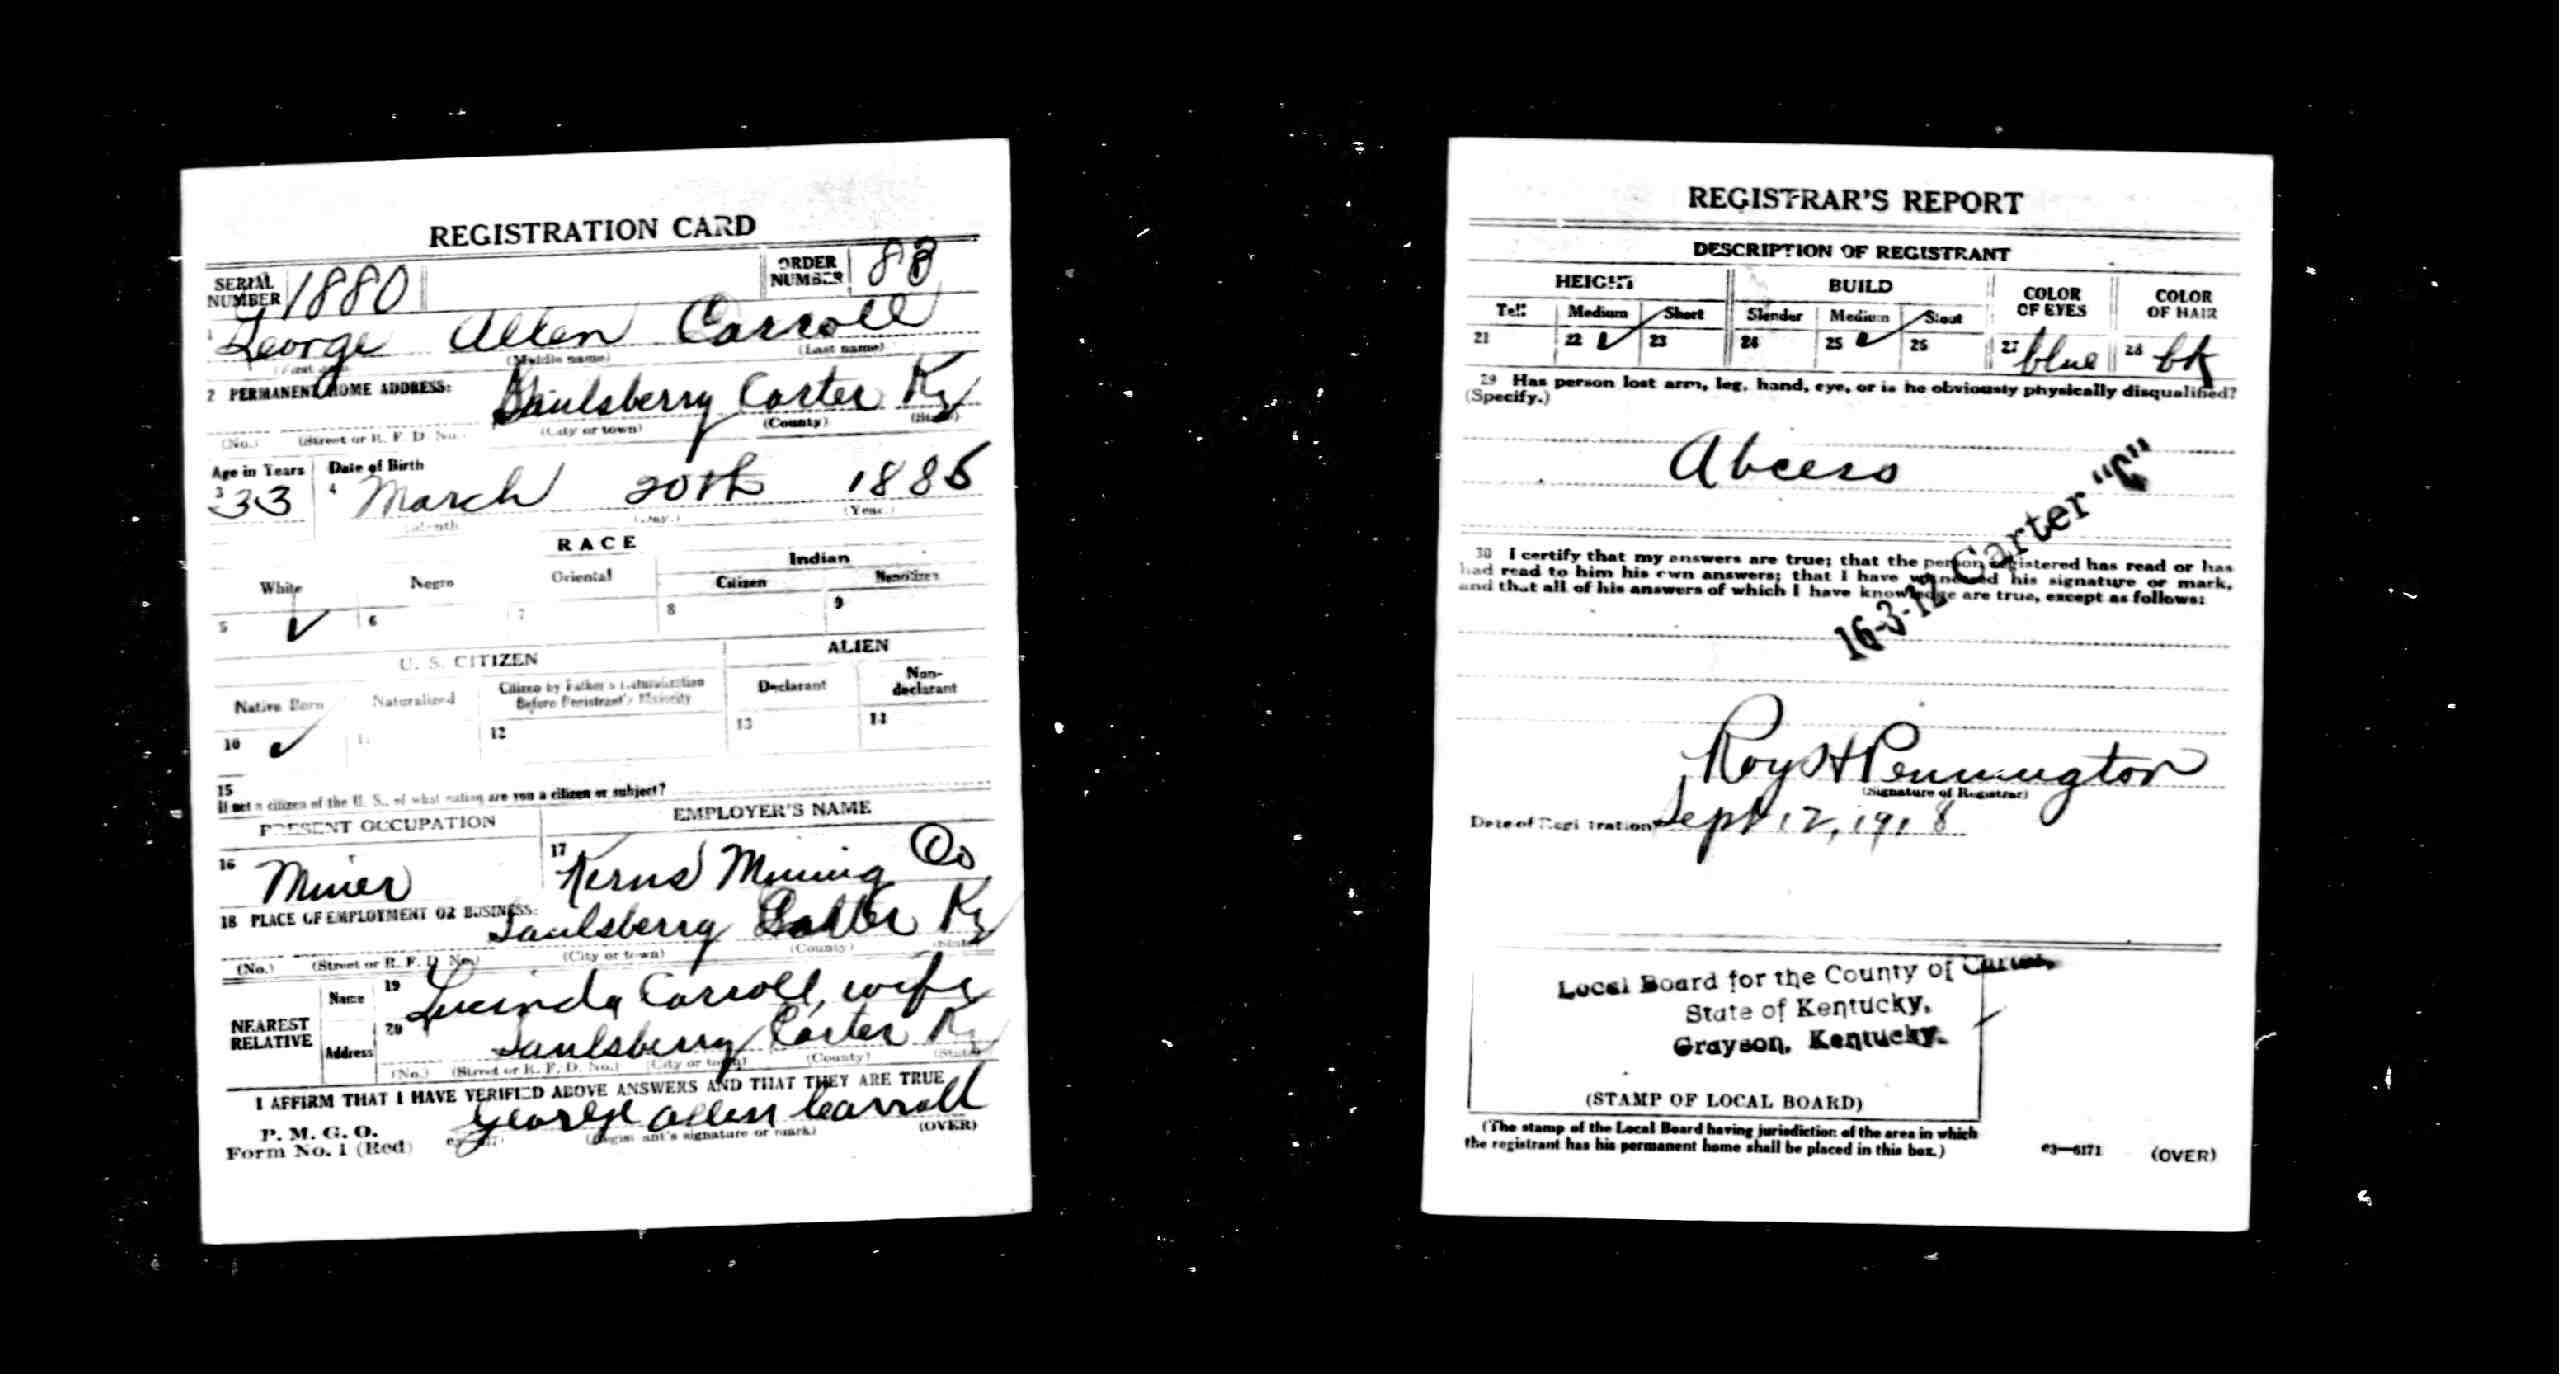 REGISTRATION CARD
SERIAL NUMBER 1880 ORDER NUMBER 88
1 George Allen Carroll
(Middle name) (Last name)
2 PERMANENT HOME ADDRESS: Saulsberry Carter Ky
(No.) (Street or R. F. D. No.) (City or town) (County) (State)
Age in Years Date of Birth
3 33 4 March 20th 1885
(Month) (Day.) (Year.)
RACE
White Negro Oriental Indian
Citizen Noncitizen
5 ✓ 6 7 8 9
U. S. CITIZEN ALIEN
Native Born Naturalized Citizen by Father's Naturalization Before Registrant's Majority Declarant Non-declarant
10 ✓ 11 12 13 14
15
If not a citizen of the U. S., of what nation are you a citizen or subject?
PRESENT OCCUPATION EMPLOYER'S NAME
16 Miner 17 Kerns Mining Co
18 PLACE OF EMPLOYMENT OR BUSINESS:
Saulsberry Carter Ky
(No.) (Street or R. F. D. No.) (City or town) (County) (State)
NEAREST RELATIVE Name 19 Lucinda Carroll, wife
Address 20 Saulsberry Carter Ky
(No.) (Street or R. F. D. No.) (City or town) (County) (State)
I AFFIRM THAT I HAVE VERIFIED ABOVE ANSWERS AND THAT THEY ARE TRUE
P. M. G. O.
Form No. 1 (Red) George allen Carroll
(Registrant's signature or mark) (OVER)
REGISTRAR'S REPORT
DESCRIPTION OF REGISTRANT
HEIGHT BUILD COLOR OF EYES COLOR OF HAIR
Tall Medium Short Slender Medium Stout
21 22 ✓ 23 24 25 ✓ 26 27 blue 28 bk
29 Has person lost arm, leg, hand, eye, or is he obviously physically disqualified?
(Specify.)
Abcess
16-3-12 Carter "C"
30 I certify that my answers are true; that the person registered has read or has
had read to him his own answers; that I have witnessed his signature or mark,
and that all of his answers of which I have knowledge are true, except as follows:
Roy H Pennington
(Signature of Registrar)
Date of Registration Sept 12, 1918
Local Board for the County of Carter,
State of Kentucky,
Grayson, Kentucky.
(STAMP OF LOCAL BOARD)
(The stamp of the Local Board having jurisdiction of the area in which
the registrant has his permanent home shall be placed in this box.)
03—6171 (OVER)